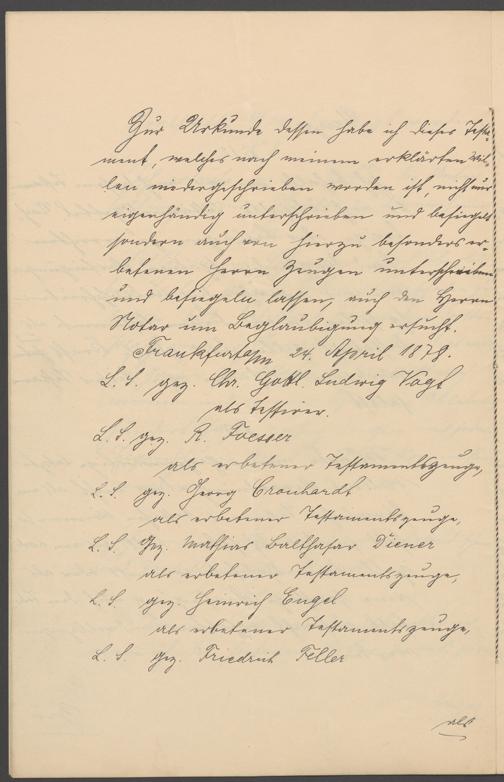 Zur Urkunde dessen habe ich dieses Testa-
ment, welches nach meinem erklärten Wil-
len niedergeschrieben worden ist, nicht nur
eigenhändig unterschrieben und besiegelt
sondern auch von hierzu besonders er-
betenen Herrn Zeugen unterschreiben
und besiegeln lassen, auch den Herrn
Notar um Beglaubigung ersucht.
Frankfurt a/m 24. April 1878.
L. S. gez. Chr. Gottl. Ludwig Vogt
als Testirer.
L. S. gez. R. Foesser
als erbetener Testamentszeuge,
L. S. gez. Georg Cronhardt
als erbetener Testamentszeuge,
L. S. gez. Mathias Balthasar Diener
als erbetener Testamentszeuge,
L. S. gez. Heinrich Engel
als erbetener Testamentszeuge,
L. S. gez. Friedrich Feller
als